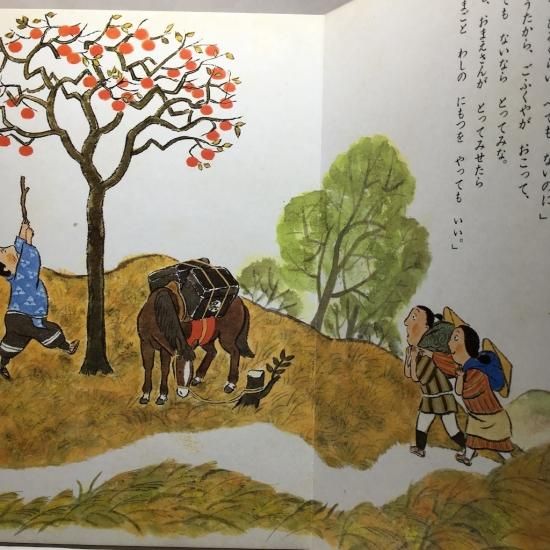 らい でも ないのに」
うたから、ごふくやが おこって、
でも ないなら とってみな。
、おまえさんが とってみせたら
まごと わしの にもつを やっても いい。」